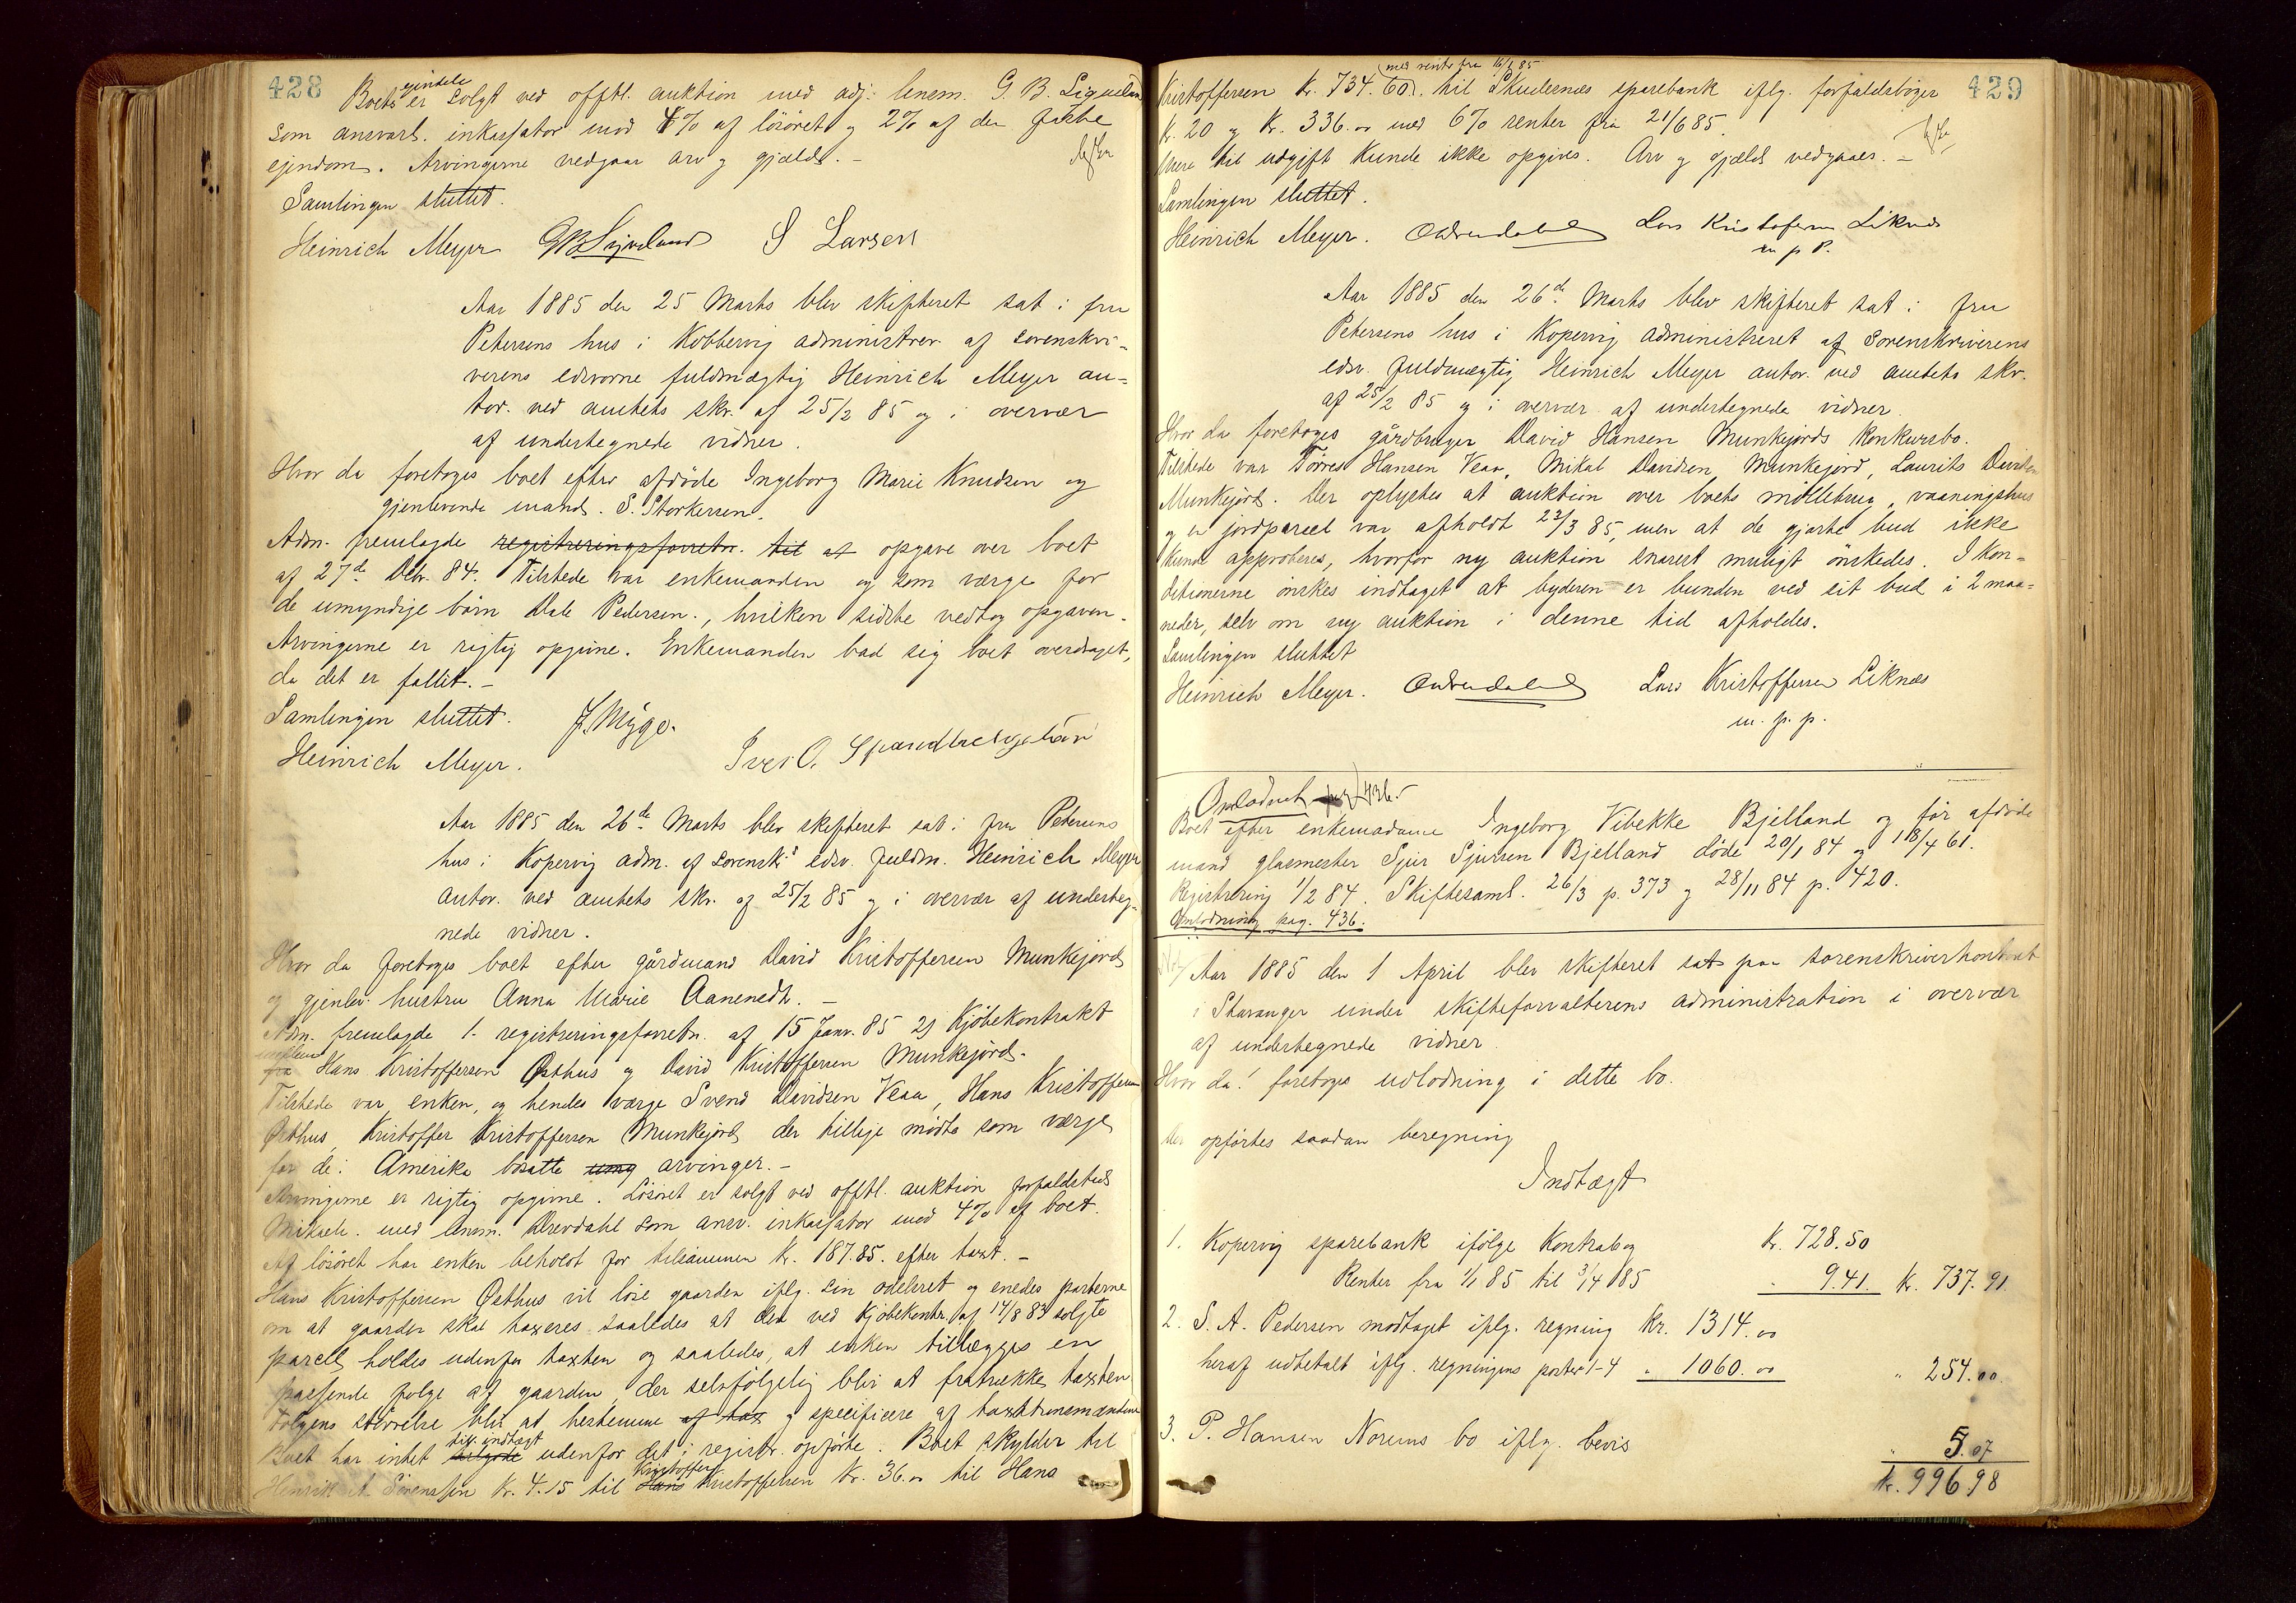 428
Boets eiendele er solgt ved offtl. auktion med adj. lensm. G. B. Liguelan
som ansvarl. inkassator mod 4% af lösöret og 2% af den faste
ejendom. Arvingerne vedgaar arv og gjæld. -
Samlingen sluttet.
Heinrich Meyer S Larsen
Aar 1885 den 25 Marts blev skifteret sat i fru
Petersens hus i Kobbervig administrer. af sorenskri-
verens edsvorne fuldmægtig Heinrich Meyer au-
tor. ved amtets skr. af 25/2 85 og i overvær
af undertegnede vidner.
Hvor da foretoges boet efter afdöde Ingeborg Marie Knudsen og
gjenlevende mand. S. Storkersen.
Adm. fremlagde registreringsforretn. til af opgave over boet
af 27de Debr. 84. Tilstede var enkemanden og som værge for
de umyndige börn Dale Pedersen., hvilken sidste vedtog opgaven.
Arvingerne er rigtig opgivne. Enkemanden bad sig boet overdraget,
da det er fallit. -
Samlingen sluttet. J. Myge.
Heinrich Meyer. Iver O.
Aar 1885 den 26de Marts blev skifteret sat i fru Petersens
hus i Kopervig adm. af sorenskr.s edsv. fuldm. Heinrich Meyer
autor. ved amtets skr. af 25/2 85 og i overvær af underteg-
nede vidner.
Hvor da foretoges boet efter gårdmand David Kristoffersen Munkejord
og gjenlev. hustru Anna Marie Aanensdt. -
Adm. fremlagde 1. registreringsforretn. af 15 Janr. 85 2) Kjöbekontrakt
mellem fra Hans Kristoffersen Østhus og David Kristoffersen Munkejord.
Tilstede var enken, og hendes værge Svend Davidsen Veaa, Hans Kristoffersen
Østhus, Kristoffer Kristoffersen Munkejord, der tillige mödte som værge
for de i Amerika bosatte umy arvinger. -
Arvingerne er rigtig opgivne. Lösöret er solgt ved offtl. auktion forfaldstid
Mikaeli. med lensm. Drevdahl som ansv. inkassator mod 4% af boet.
Af lösöret har enken beholdt for tilsammen Kr. 187.85. efter taxt. -
Hans Kristoffersen Østhus vil löse gaarden iflg. sin odelsret og enedes parterne
om at gaarden skal taxeres saaledes at den ved kjöbekontr. af 14/8 83 solgte
parcel holdes udenfor taxten og saaledes, at enken tillægges en
passende folge af gaarden, der selvfölgelig blir at fratrække taxten
Folgens störrelse blir at bestemme af tax og specificere af taxtmændene
Boet har intet till. indtægt udenfor det i registr. opförte. Boet skylder til
Henrik A. Sörenssen Kr. 4.15 til Hans Kristoffer Kristoffersen Kr. 36.00 til Hans
429
Kristoffersen Kr. 734.60. (med rente fra 16/1 85 til Skudesnæs sparebank iflg. forfaldsböger
Kr. 20 og Kr. 336.00 med 6% renter fra 21/6 85.
Mere til udgift kunde ikke opgives. Arv og gjæld vedgaaes. -
Samlingen sluttet.
Heinrich Meyer. Lars Kristofersen Liknes
m p P.
Aar 1885 den 26d. Marts blev skifteret sat i fru
Petersens hus i Kopervig administreret af sorenskriverens
edsv. fuldmægtig Heinrich Meyer autor. ved amtets skr.
af 25/2 85 og i overvær af undertegnede vidner.
Hvor da foretoges gårdbruger David Hansen Munkejords konkursbo.
Tilstede var Törres Hansen Veaa, Mikal Davidsen Munkejord, Laurits Davidsen
Munkejord. Der oplystes at auktion over boets möllebrug, vaaningshus
og en jordparcel var afholdt 23/3 85, men at de gjorte bud ikke
kunde approberes, hvorfor ny auktion snarest muligt önskedes. I kon-
ditionerne önskes indtaget at byderen er bunden ved sit bud i 2 maa-
neder, selv om ny auktion i denne tid afholdes.
Samlingen sluttet
Heinrich Meyer. Lars Kristoffersen Liknæs
m. p. p.
Omlodnet pag 436.
Boet efter enkemadame Ingeborg Vibekke Bjelland og för afdöde
mand glasmester Sjur Sjursen Bjelland döde 20/1 84 og 18/4 61.
Registrering 1/2 84. Skiftesaml. 26/3 p. 373 og 28/11 84 p. 420.
Omlodning pag. 436.
Aar 1885 den 1 April blev skifteret sat paa sorenskriverkontoret
i Stavanger under skifteforvalterens administration i overvær
af undertegnede vidner.
Hvor da! foretoges udlodning i dette bo.
Der opförtes saadan beregning
Indtægt
1. Kopervig sparebank ifölge Kontrabog Kr. 728.50
Renter fra 1/1 85 til 3/4 85 " 9.41. Kr. 737.91.
2. S. A. Pedersen modtaget iflg. regning Kr. 1314.00
heraf udbetalt iflg. regningens poster 1-4 " 1060.00 " 254.00.
3. P. Hansen Norems bo iflg. bevis " 5.07
Kr. 996 98